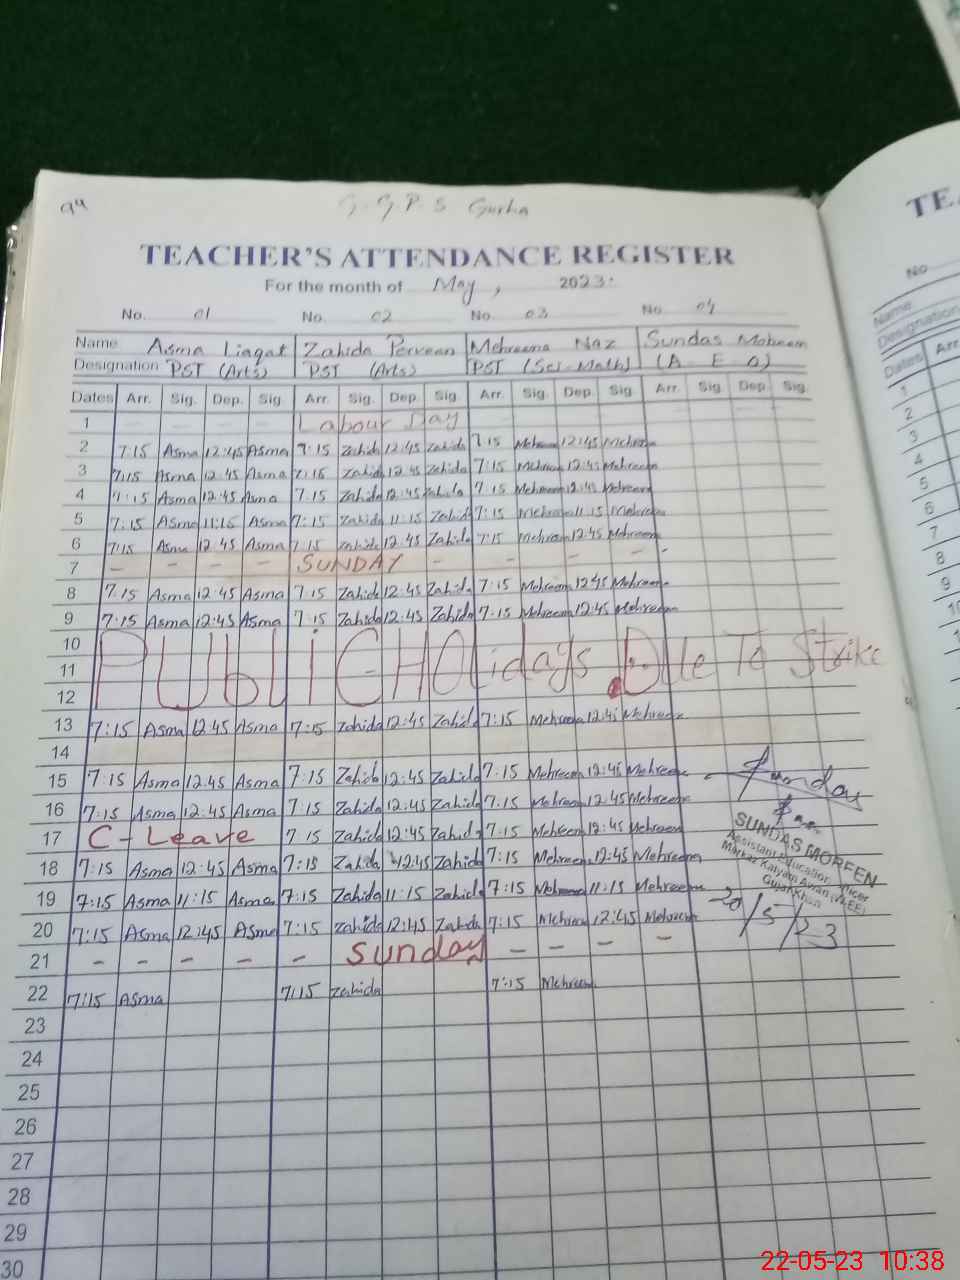 G.G.P.S Gurha
TEACHER'S ATTENDANCE REGISTER
For the month of May, 2023.
No. 01 No. 02 No. 03 No. 04
Name Asma Liaqat Zahida Perveen Mehreena Naz Sundas Mohreen
Designation PST (Arts) PST (Arts) PST (Sci-Math) (A-E-O)
Dates Arr. Sig. Dep. Sig. Arr. Sig. Dep. Sig. Arr. Sig. Dep. Sig. Arr. Sig. Dep. Sig.
1 Labour Day
2 7:15 Asma 12:45 Asma 7:15 Zahida 12:45 Zahida 7:15 Mehreen 12:45 Mehreen
3 7:15 Asma 12:45 Asma 7:15 Zahida 12:45 Zahida 7:15 Mehreen 12:45 Mehreen
4 7:15 Asma 12:45 Asma 7:15 Zahida 12:45 Zahida 7:15 Mehreen 12:45 Mehreen
5 7:15 Asma 11:15 Asma 7:15 Zahida 11:15 Zahida 7:15 Mehreen 11:15 Mehreen
6 7:15 Asma 12:45 Asma 7:15 Zahida 12:45 Zahida 7:15 Mehreen 12:45 Mehreen
7 - - - - SUNDAY - - - - -
8 7:15 Asma 12:45 Asma 7:15 Zahida 12:45 Zahida 7:15 Mehreen 12:45 Mehreen
9 7:15 Asma 12:45 Asma 7:15 Zahida 12:45 Zahida 7:15 Mehreen 12:45 Mehreen
10
11 PUbliC HOlidays Due To Strike
12
13 7:15 Asma 12:45 Asma 7:15 Zahida 12:45 Zahida 7:15 Mehreen 12:45 Mehreen
14
15 7:15 Asma 12:45 Asma 7:15 Zahida 12:45 Zahida 7:15 Mehreen 12:45 Mehreen
16 7:15 Asma 12:45 Asma 7:15 Zahida 12:45 Zahida 7:15 Mehreen 12:45 Mehreen
17 C-Leave 7:15 Zahida 12:45 Zahida 7:15 Mehreen 12:45 Mehreen
18 7:15 Asma 12:45 Asma 7:15 Zahida 12:45 Zahida 7:15 Mehreen 12:45 Mehreen
19 7:15 Asma 11:15 Asma 7:15 Zahida 11:15 Zahida 7:15 Mehreen 11:15 Mehreen
20 7:15 Asma 12:45 Asma 7:15 Zahida 12:45 Zahida 7:15 Mehreen 12:45 Mehreen
21 - - - - - Sunday - - - -
22 7:15 Asma 7:15 Zahida 7:15 Mehreen
23
24
25
26
27
28
29
30
SUNDAS MOREEN
Assistant Education Officer
Markaz Kalyam Awan (W-EE)
Gujar Khan
20/5/23
TE
No
Name
Designation
Dates Arr.
1
2
3
4
5
6
7
8
9
10
22-05-23 10:38